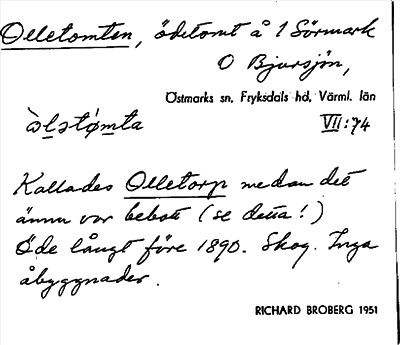 Olletomten, ödetomt å 1 Sörmark
O Bjursjön,
Östmarks sn, Fryksdals hd, Värml. län
òlәtǿmta VII:74
Kallades Olletorp medan det
ännu var bebott (se detta!)
Öde långt före 1890. Skog. Inga
åbyggnader.
RICHARD BROBERG 1951